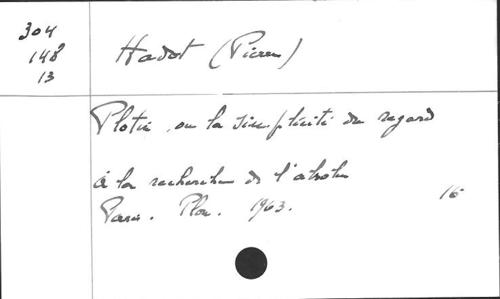 304
148
13
Hadot (Pierre)
Plotin ou la simplicité du regard
à la recherche de l'absolu
Paris. Plon. 1963.
16